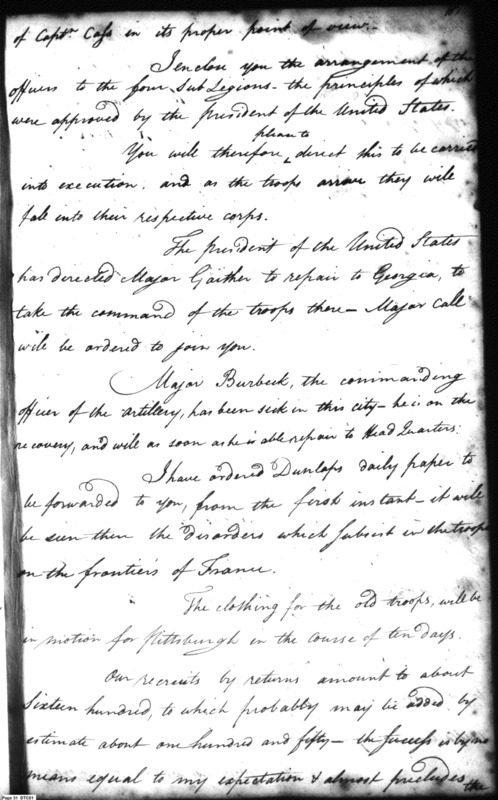 of Captn. Cass in its proper point of view.
I enclose you the arrangement of the
officers to the four Sub Legions - the principles of which
were approved by the President of the United States.
please to
You will therefore ^ direct this to be carried
into execution. and as the troops arrive they will
fall into their respective corps.
The President of the United States
has directed Major Gaither to repair to Georgia, to
take the command of the troops there - Major Call
will be ordered to join you.
Major Burbeck, the commanding
officer of the artillery, has been sick in this city - he is on the
recovery, and will as soon as he is able, repair to Head Quarters.
I have ordered Dunlaps daily paper to
be forwarded to you, from the first instant - it will
be seen then the disorders which subsist in the troops
on the frontiers of France.
The clothing for the old troops, will be
in motion for Pittsburgh in the course of ten days.
Our recruits by returns amount to about
Sixteen hundred, to which probably may be added by
estimate about one hundred and fifty - the success is by no
means equal to my expectation & almost precludes the
Page 31 DTC01